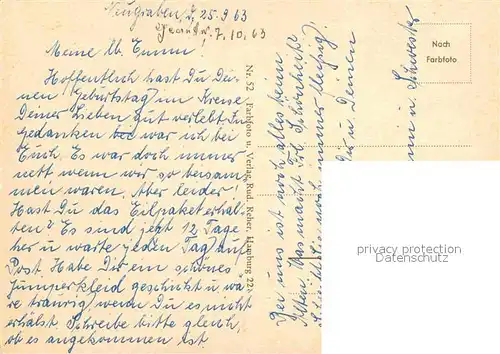 Neugraben, 25.9.63
Beantw. 7.10.63
Meine lb. Emmi!
Hoffentlich hast Du Dei-
nen Geburtstag im Kreise
Deiner Lieben gut verlebt. In
Gedanken war ich bei
Euch. Es war doch immer
nett wenn wir so beisam-
men waren. Aber leider!
Hast Du das Eilpaket erhal-
ten? Es sind jetzt 12 Tage
her u warte jeden Tag auf
Post. Habe Dir ein schönes
Jumperkleid geschickt u wä-
re traurig, wenn Du es nicht
erhälst. Schreibe bitte gleich,
ob es angekommen ist.
Nr. 52 Farbfoto u. Verlag Rud. Reher, Hamburg 22
Bei uns ist noch alles beim
Alten. Was macht Frl.
noch immer fleißig?
Dir u. Deinen
u. Schwester
Nach
Farbfoto
privacy protection
Datenschutz